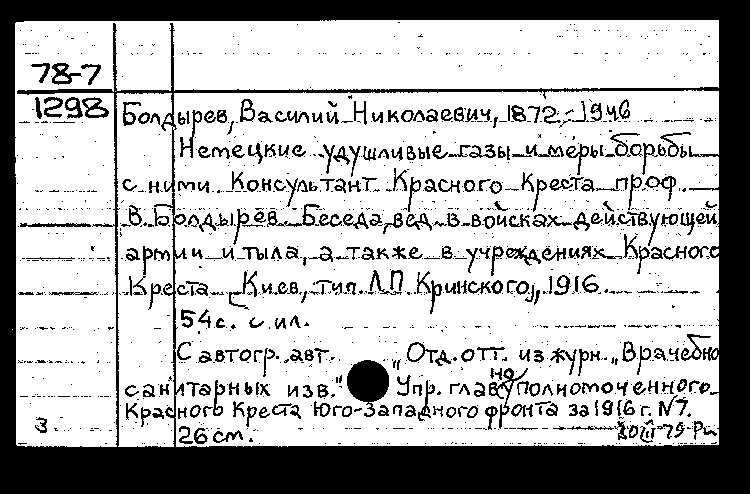 78-7
1298
Болдырев, Василий Николаевич, 1872-1946
Немецкие удушливые газы и меры борьбы
с ними. Консультант Красного Креста проф.
В. Болдырев. Беседа, вед. в войсках действующей
армии и тыла, а также в учреждениях Красного
Креста. Киев, тип. Л.П. Кринского, 1916.
54с. с ил.
С автогр. авт. „Отд. отт. из журн. „Врачебно
санитарных изв." Упр. главноуполномоченного
Красного Креста Юго-Западного фронта за 1916 г. N7.
3 26 см. 79